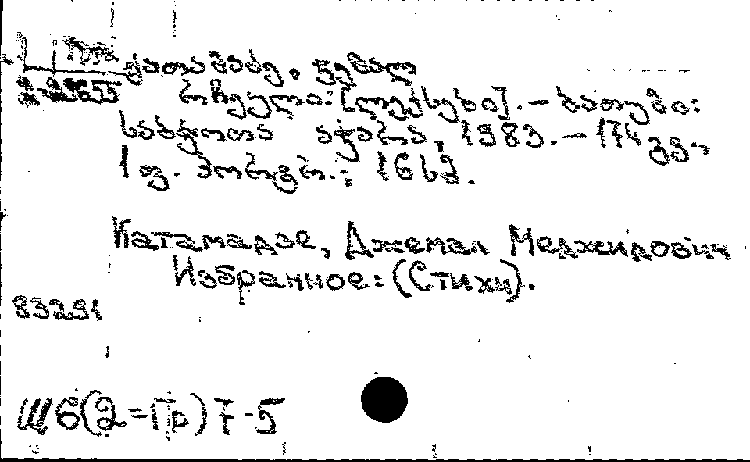 ქათამაძე, ჯემალ
რჩეული: [ლექსები]. – ბათუმი:
საბჭოთა აჭარა, 1983. – 174 გვ.,
1 ფ. პორტრ.; 16სმ.
Катамадзе, Джемал Меджидович
Избранное: (Стихи).
83291
Ш6(2=Гр)7-5